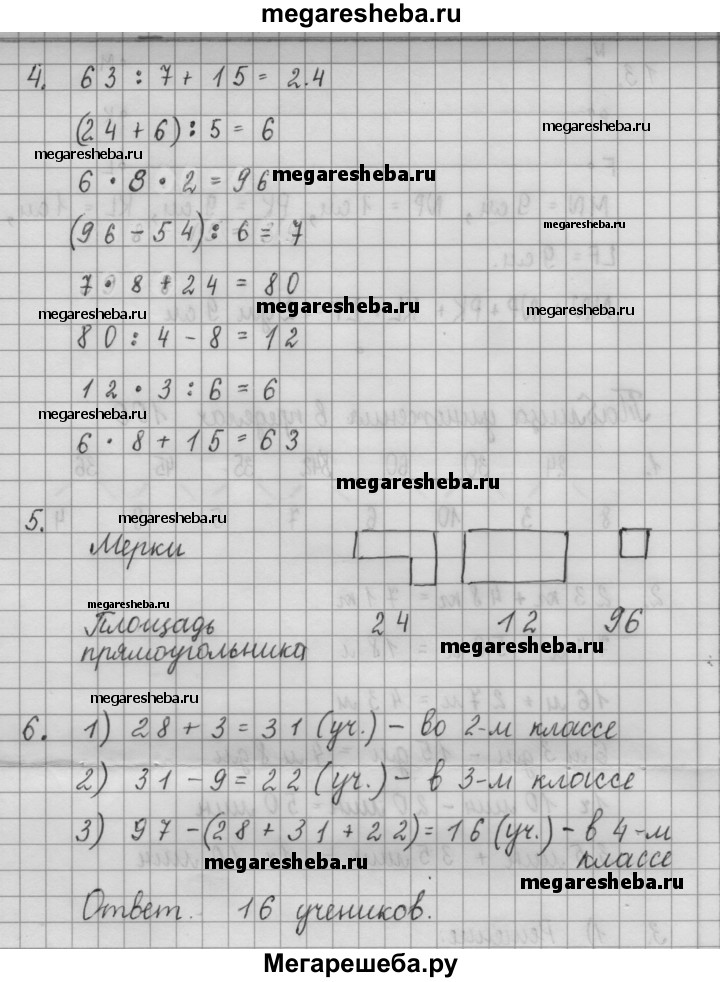 megaresheba.ru
4. 63 : 7 + 15 = 2.4
(24 + 6) : 5 = 6
megaresheba.ru
megaresheba.ru
megaresheba.ru
6 · 8 · 2 = 96
(96 - 54) : 6 = 7
megaresheba.ru
7 · 8 + 24 = 80
megaresheba.ru
megaresheba.ru
megaresheba.ru
80 : 4 - 8 = 12
12 · 3 : 6 = 6
megaresheba.ru
6 · 8 + 15 = 63
megaresheba.ru
5. megaresheba.ru
Мерки
megaresheba.ru
Площадь 24 12 96
прямоугольника
megaresheba.ru
megaresheba.ru
6. 1) 28 + 3 = 31 (уч.) - во 2-м классе
2) 31 - 9 = 22 (уч.) - в 3-м классе
3) 97 - (28 + 31 + 22) = 16 (уч.) - в 4-м
классе
megaresheba.ru
megaresheba.ru
Ответ. 16 учеников.
Мегарешеба.ру